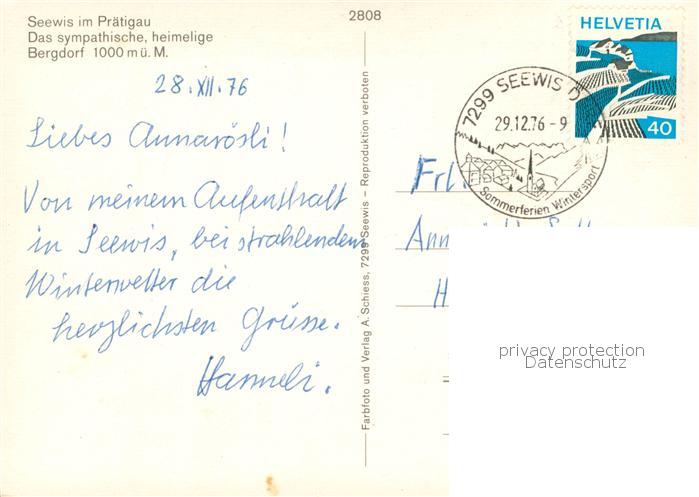 Seewis im Prätigau
Das sympathische, heimelige
Bergdorf 1000 m ü. M.
2808
28. XII. 76
Liebes Annarösli!
Von meinem Aufenthalt
in Seewis, bei strahlendem
Winterwetter die
herzlichsten Grüsse.
Hanneli.
Farbfoto und Verlag A. Schiess, 7299 Seewis – Reproduktion verboten
HELVETIA
40
7299 SEEWIS D
29.12.76-9
Sommerferien Wintersport
Frl.
H
privacy protection
Datenschutz